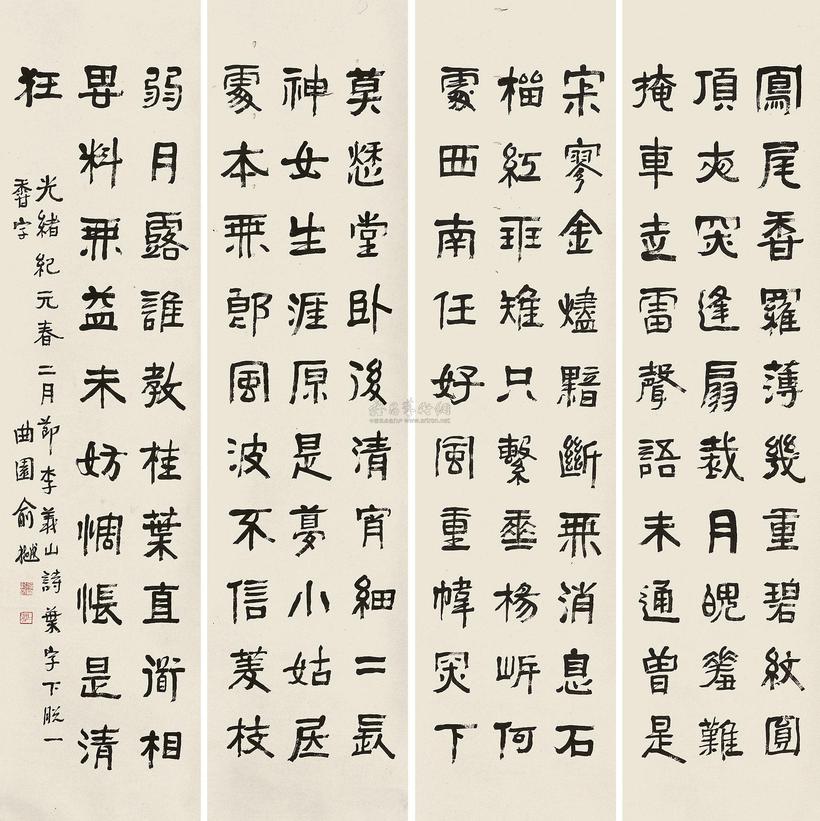 鳳尾香羅薄幾重碧紋圓
頂夜罙逢扇裁月魄羞難
掩車走雷聲語未通曾是
宋寥金燼黯斷無消息石
榴紅班騅只繫垂楊岸何
處西南任好風重幃罙下
莫愁堂臥後清宵細二長
神女生涯原是夢小姑居
處本無郎風波不信菱枝
弱月露誰教桂葉直道相
思料無益未妨惆悵是清
狂
光緒紀元春二月節李義山詩葉字下脫一
香字
曲園俞樾